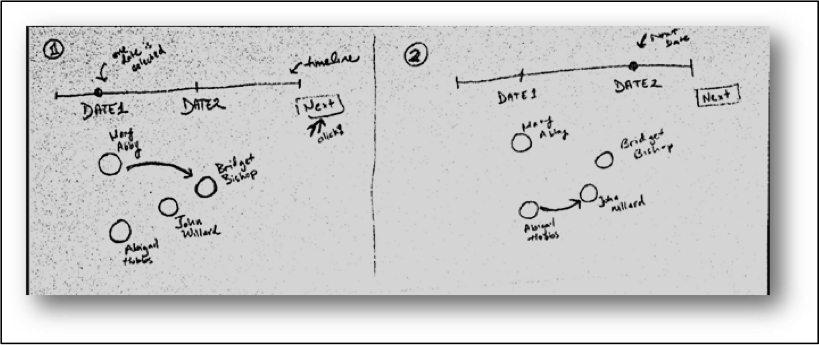 1
one
date is
selected
timeline
DATE1
DATE2
Next
click!
Mary
Abby
Bridget
Bishop
John
Willard
Abigail
Hobbs
2
next
Date
DATE1
DATE2
Next
Mary
Abby
Bridget
Bishop
John
Willard
Abigail
Hobbs